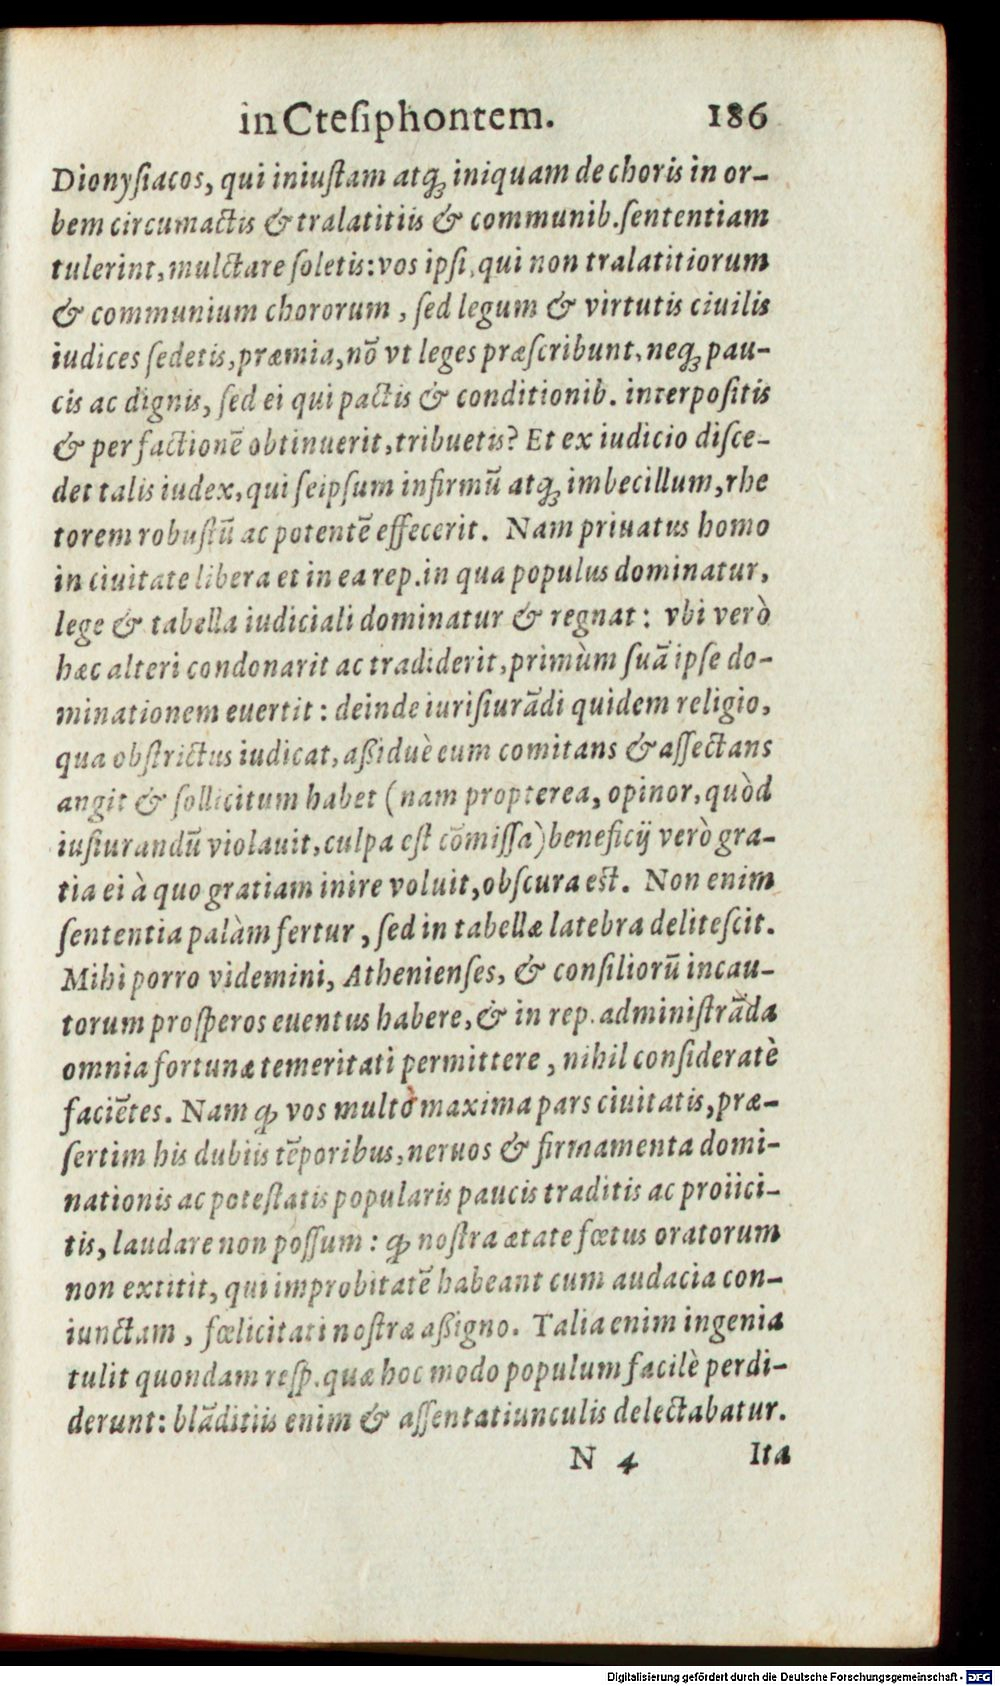 in Cteſiphontem. 186
Dionyſiacos, qui iniuſtam atq́ꝫ iniquam de choris in or-
bem circumactis & tralatitiis & communib. ſententiam
tulerint, mulctare ſoletis: vos ipſi, qui non tralatitiorum
& communium chororum, ſed legum & virtutis ciuilis
iudices ſedetis, præmia, nō vt leges præſcribunt, neqꝫ pau-
cis ac dignis, ſed ei qui pactis & conditionib. interpoſitis
& per factionē obtinuerit, tribuetis? Et ex iudicio diſce-
det talis iudex, qui ſeipſum infirmū atqꝫ imbecillum, rhe
torem robuſtū ac potentē effecerit. Nam priuatus homo
in ciuitate libera et in ea rep. in qua populus dominatur,
lege & tabella iudiciali dominatur & regnat: vbi verò
hæc alteri condonarit ac tradiderit, primùm ſuā ipſe do-
minationem euertit: deinde iuriſiurādi quidem religio,
qua obſtrictus iudicat, aßiduè eum comitans & aſſectans
angit & ſollicitum habet (nam propterea, opinor, quòd
iuſiurandū violauit, culpa eſt cōmiſſa) beneficij verò gra-
tia ei à quo gratiam inire voluit, obſcura eſt. Non enim
ſententia palàm fertur, ſed in tabellæ latebra deliteſcit.
Mihi porro videmini, Athenienſes, & conſiliorū incau-
torum proſperos euentus habere, & in rep. adminiſtrāda
omnia fortunæ temeritati permittere, nihil conſideratè
faciētes. Nam ꝙ vos multò maxima pars ciuitatis, præ-
ſertim his dubiis tēporibus, neruos & firmamenta domi-
nationis ac poteſtatis popularis paucis traditis ac proiici-
tis, laudare non poſſum: ꝙ noſtra ætate fœtus oratorum
non extitit, qui improbitatē habeant cum audacia con-
iunctam, fœlicitati noſtræ aßigno. Talia enim ingenia
tulit quondam reſp. quæ hoc modo populum facilè perdi-
derunt: blāditiis enim & aſſentatiunculis delectabatur.
N 4 Ita
Digitalisierung gefördert durch die Deutsche Forschungsgemeinschaft - DFG